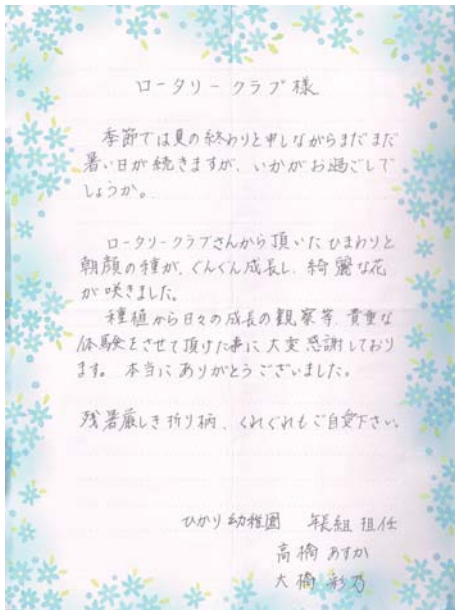 ロータリークラブ様
季節では夏の終わりと申しながらまだまだ
暑い日が続きますが、いかがお過ごしで
しょうか。
ロータリークラブさんから頂いたひまわりと
朝顔の種が、ぐんぐん成長し、綺麗な花
が咲きました。
種植から日々の成長の観察等、貴重な
体験をさせて頂けた事に大変感謝しており
ます。本当にありがとうございました。
残暑厳しき折り柄、くれぐれもご自愛下さい。
ひかり幼稚園 年長組 担任
高橋 あすか
大橋 彩乃